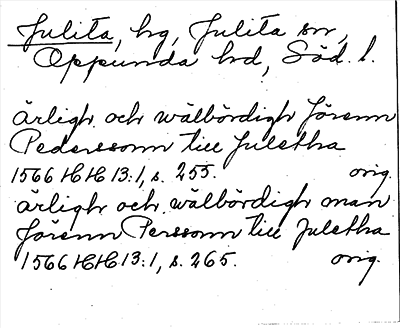 Julita, hg, Julita sn,
Oppunda hd, Söd. l.
ärligh och wälbördigh Jörenn
Pederssonn till Juletha
1566 HH 13:1, s. 255. orig.
ärligh och wälbördigh man
Jörenn Perssonn till Juletha
1566 HH 13:1, s. 265. orig.